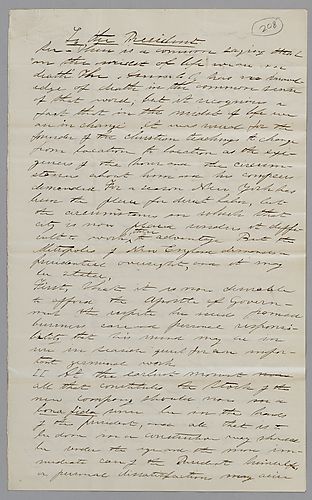 208
To the President
Sir - There is a common saying that
in the midst of life we are in
death. The has no knowl-
edge of death in the common sense
of that word, but it recognizes a
fact that in the midst of life we
are in change. It was usual for the
founder of the christian teachings to change
from location to location as the exi-
gencies of the hour and the circum-
stances about him and his compeers
demanded. For a season New York has
been the place for direct labor, but
the circumstances in which that
city is now placed renders it diffi-
cult to work to advantage. But the
Metropolis of New England demands a
presidential oversight, and it may
be stated,
First, That it is more desirable
to afford the Apostle of Govern-
ment the respite he need from
business care and personal responsi-
bility that his mind may be in
use in season good for an impor-
tant work.
II At the earliest moment
all that constitutes the Stock of the
new Company should now in a
bona fide sense be in the hands
of the president, and all that is to
be done on a constitution may should
be under the eye and the more im-
mediate care of the President himself
or personal dissatisfaction may arise